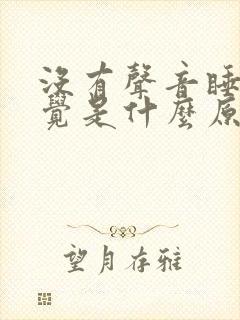 沒有聲音睡
覺是什麼原
望月存雅